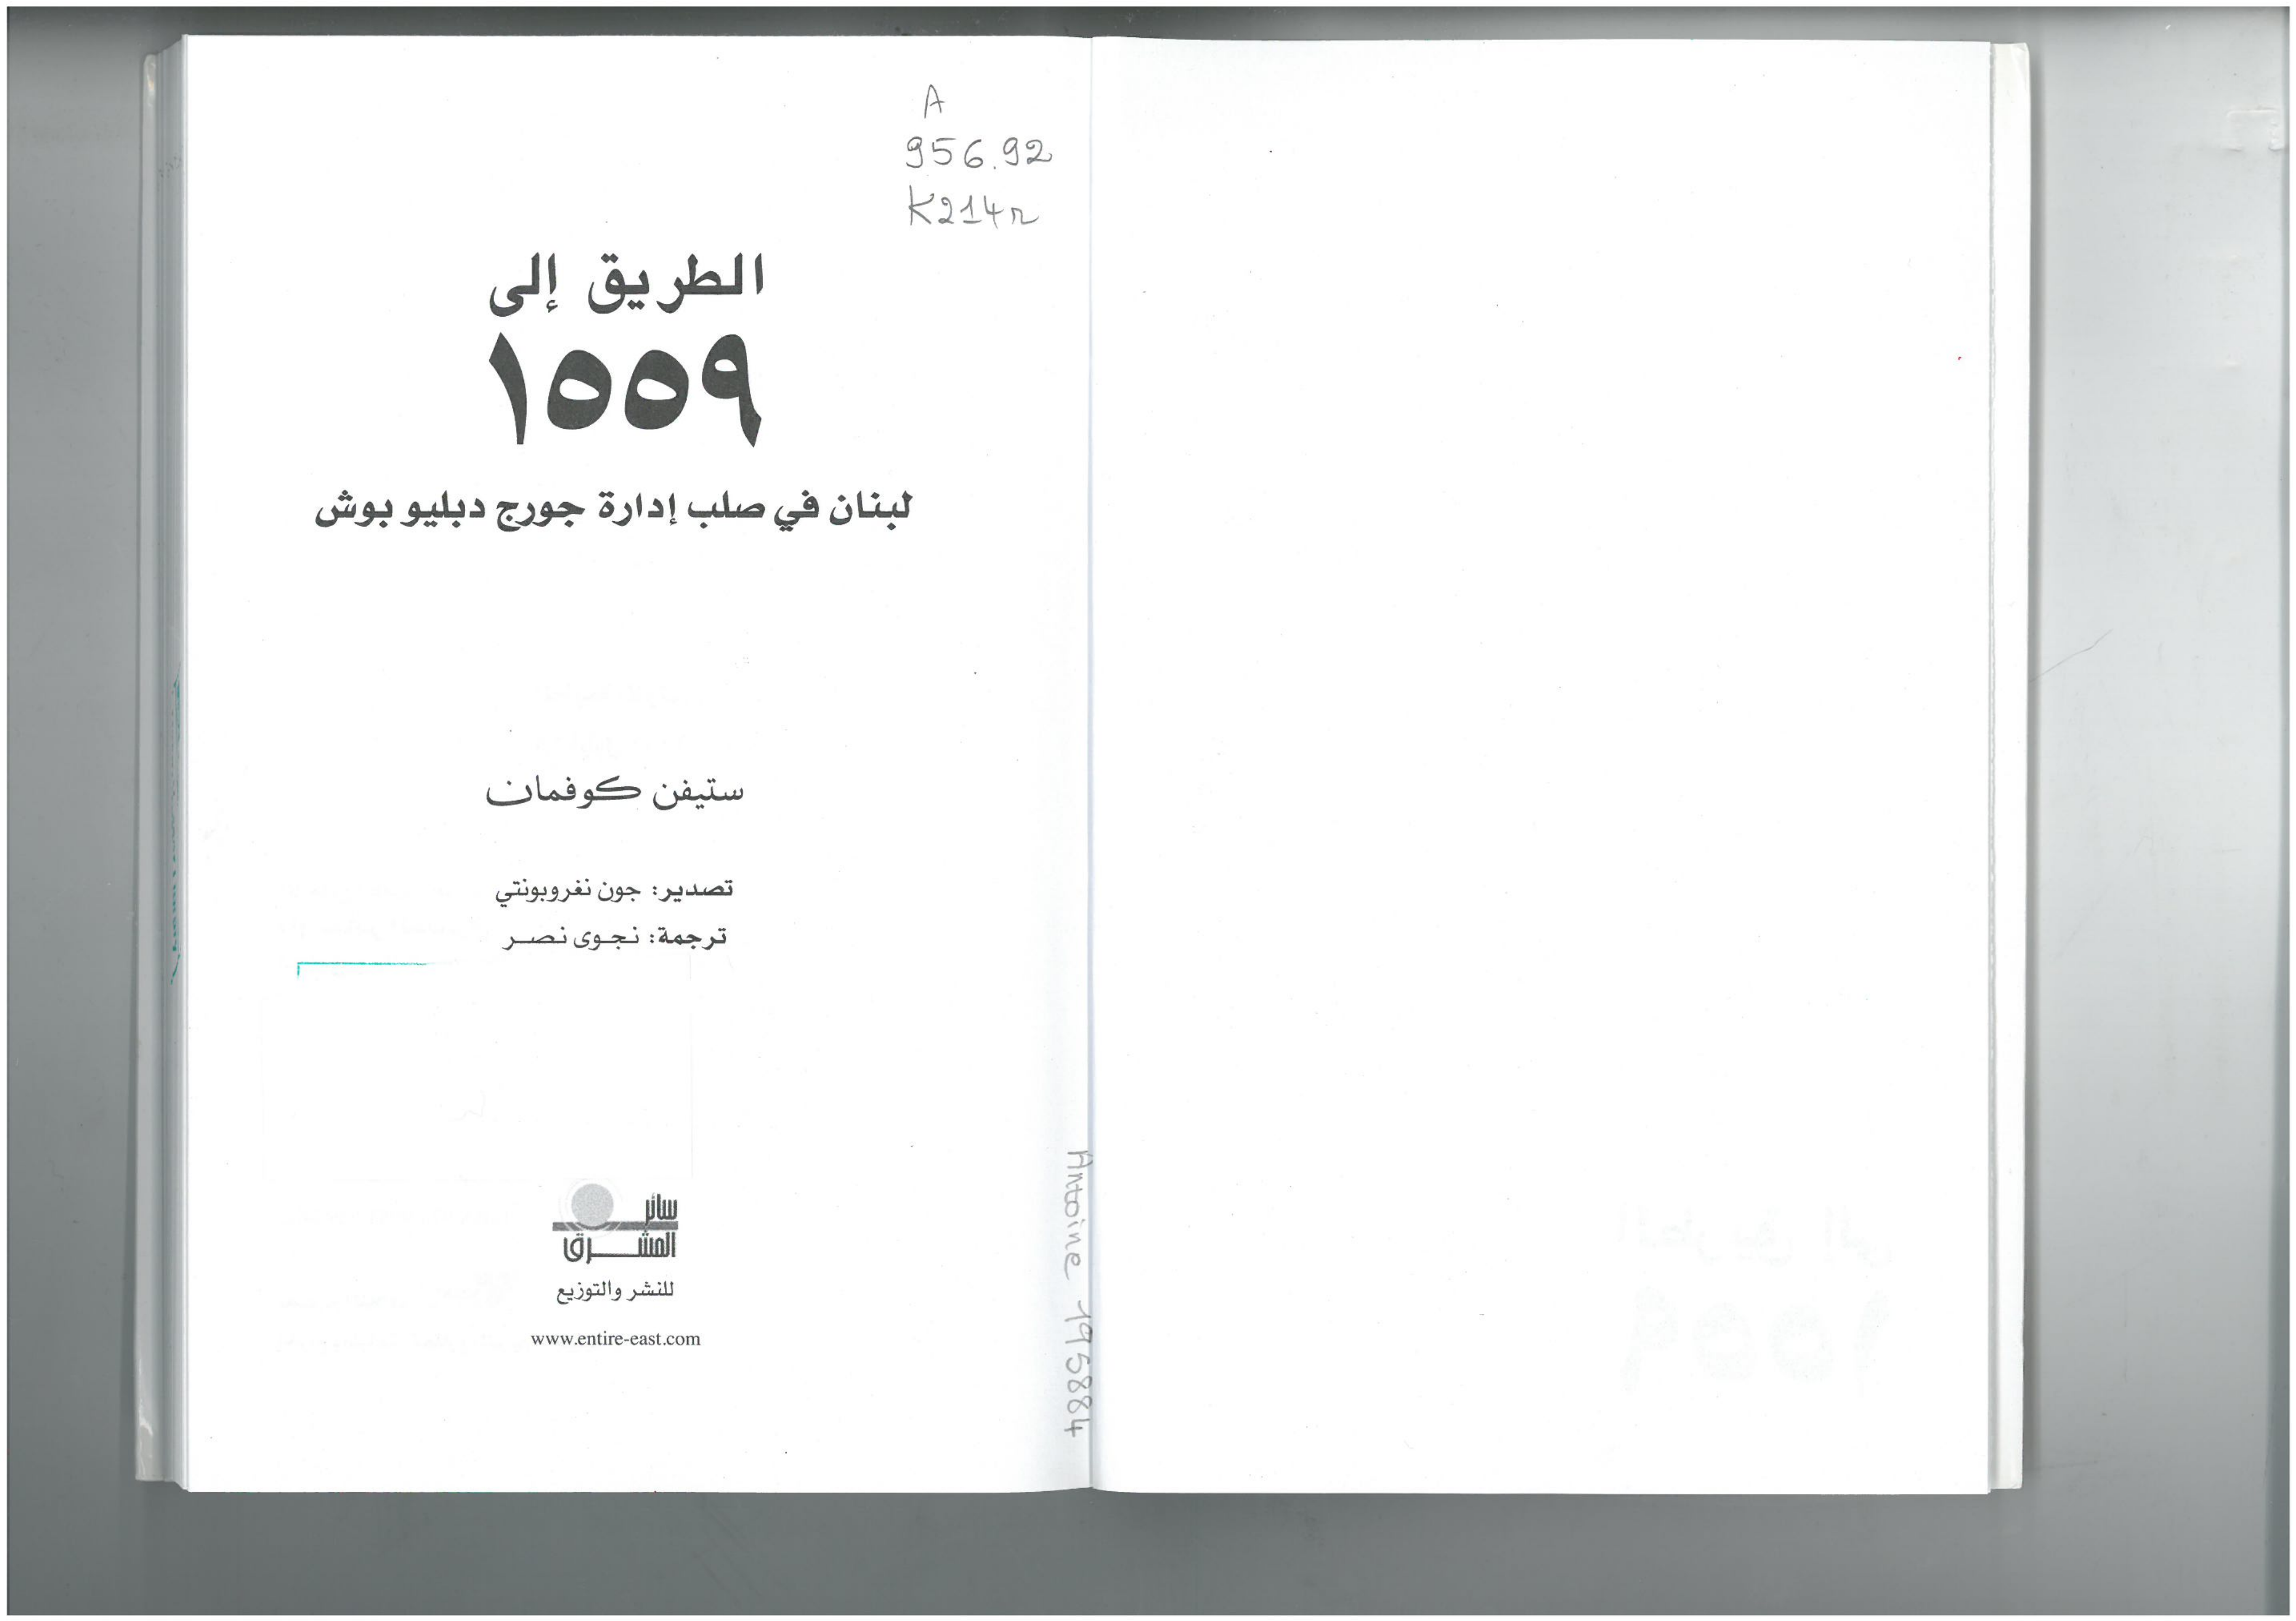 A
956.92
K214r
الطريق إلى
١٥٥٩
لبنان في صلب إدارة جورج دبليو بوش
ستيفن كوفمان
تصدير: جون نغروبونتي
ترجمة: نجوى نصر
سائر
المشرق
للنشر والتوزيع
www.entire-east.com
Antoine 195884